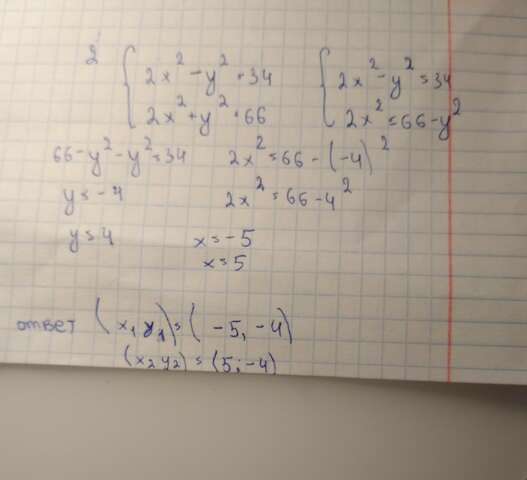 2 { 2x² - y² = 34 { 2x² - y² = 34
2x² + y² = 66 2x² = 66 - y²
66 - y² - y² = 34 2x² = 66 - (-4)²
y = -4 2x² = 66 - 4²
y = 4 x = -5
x = 5
ответ (x₁ y₁) = (-5, -4)
(x₂ y₂) = (5; -4)